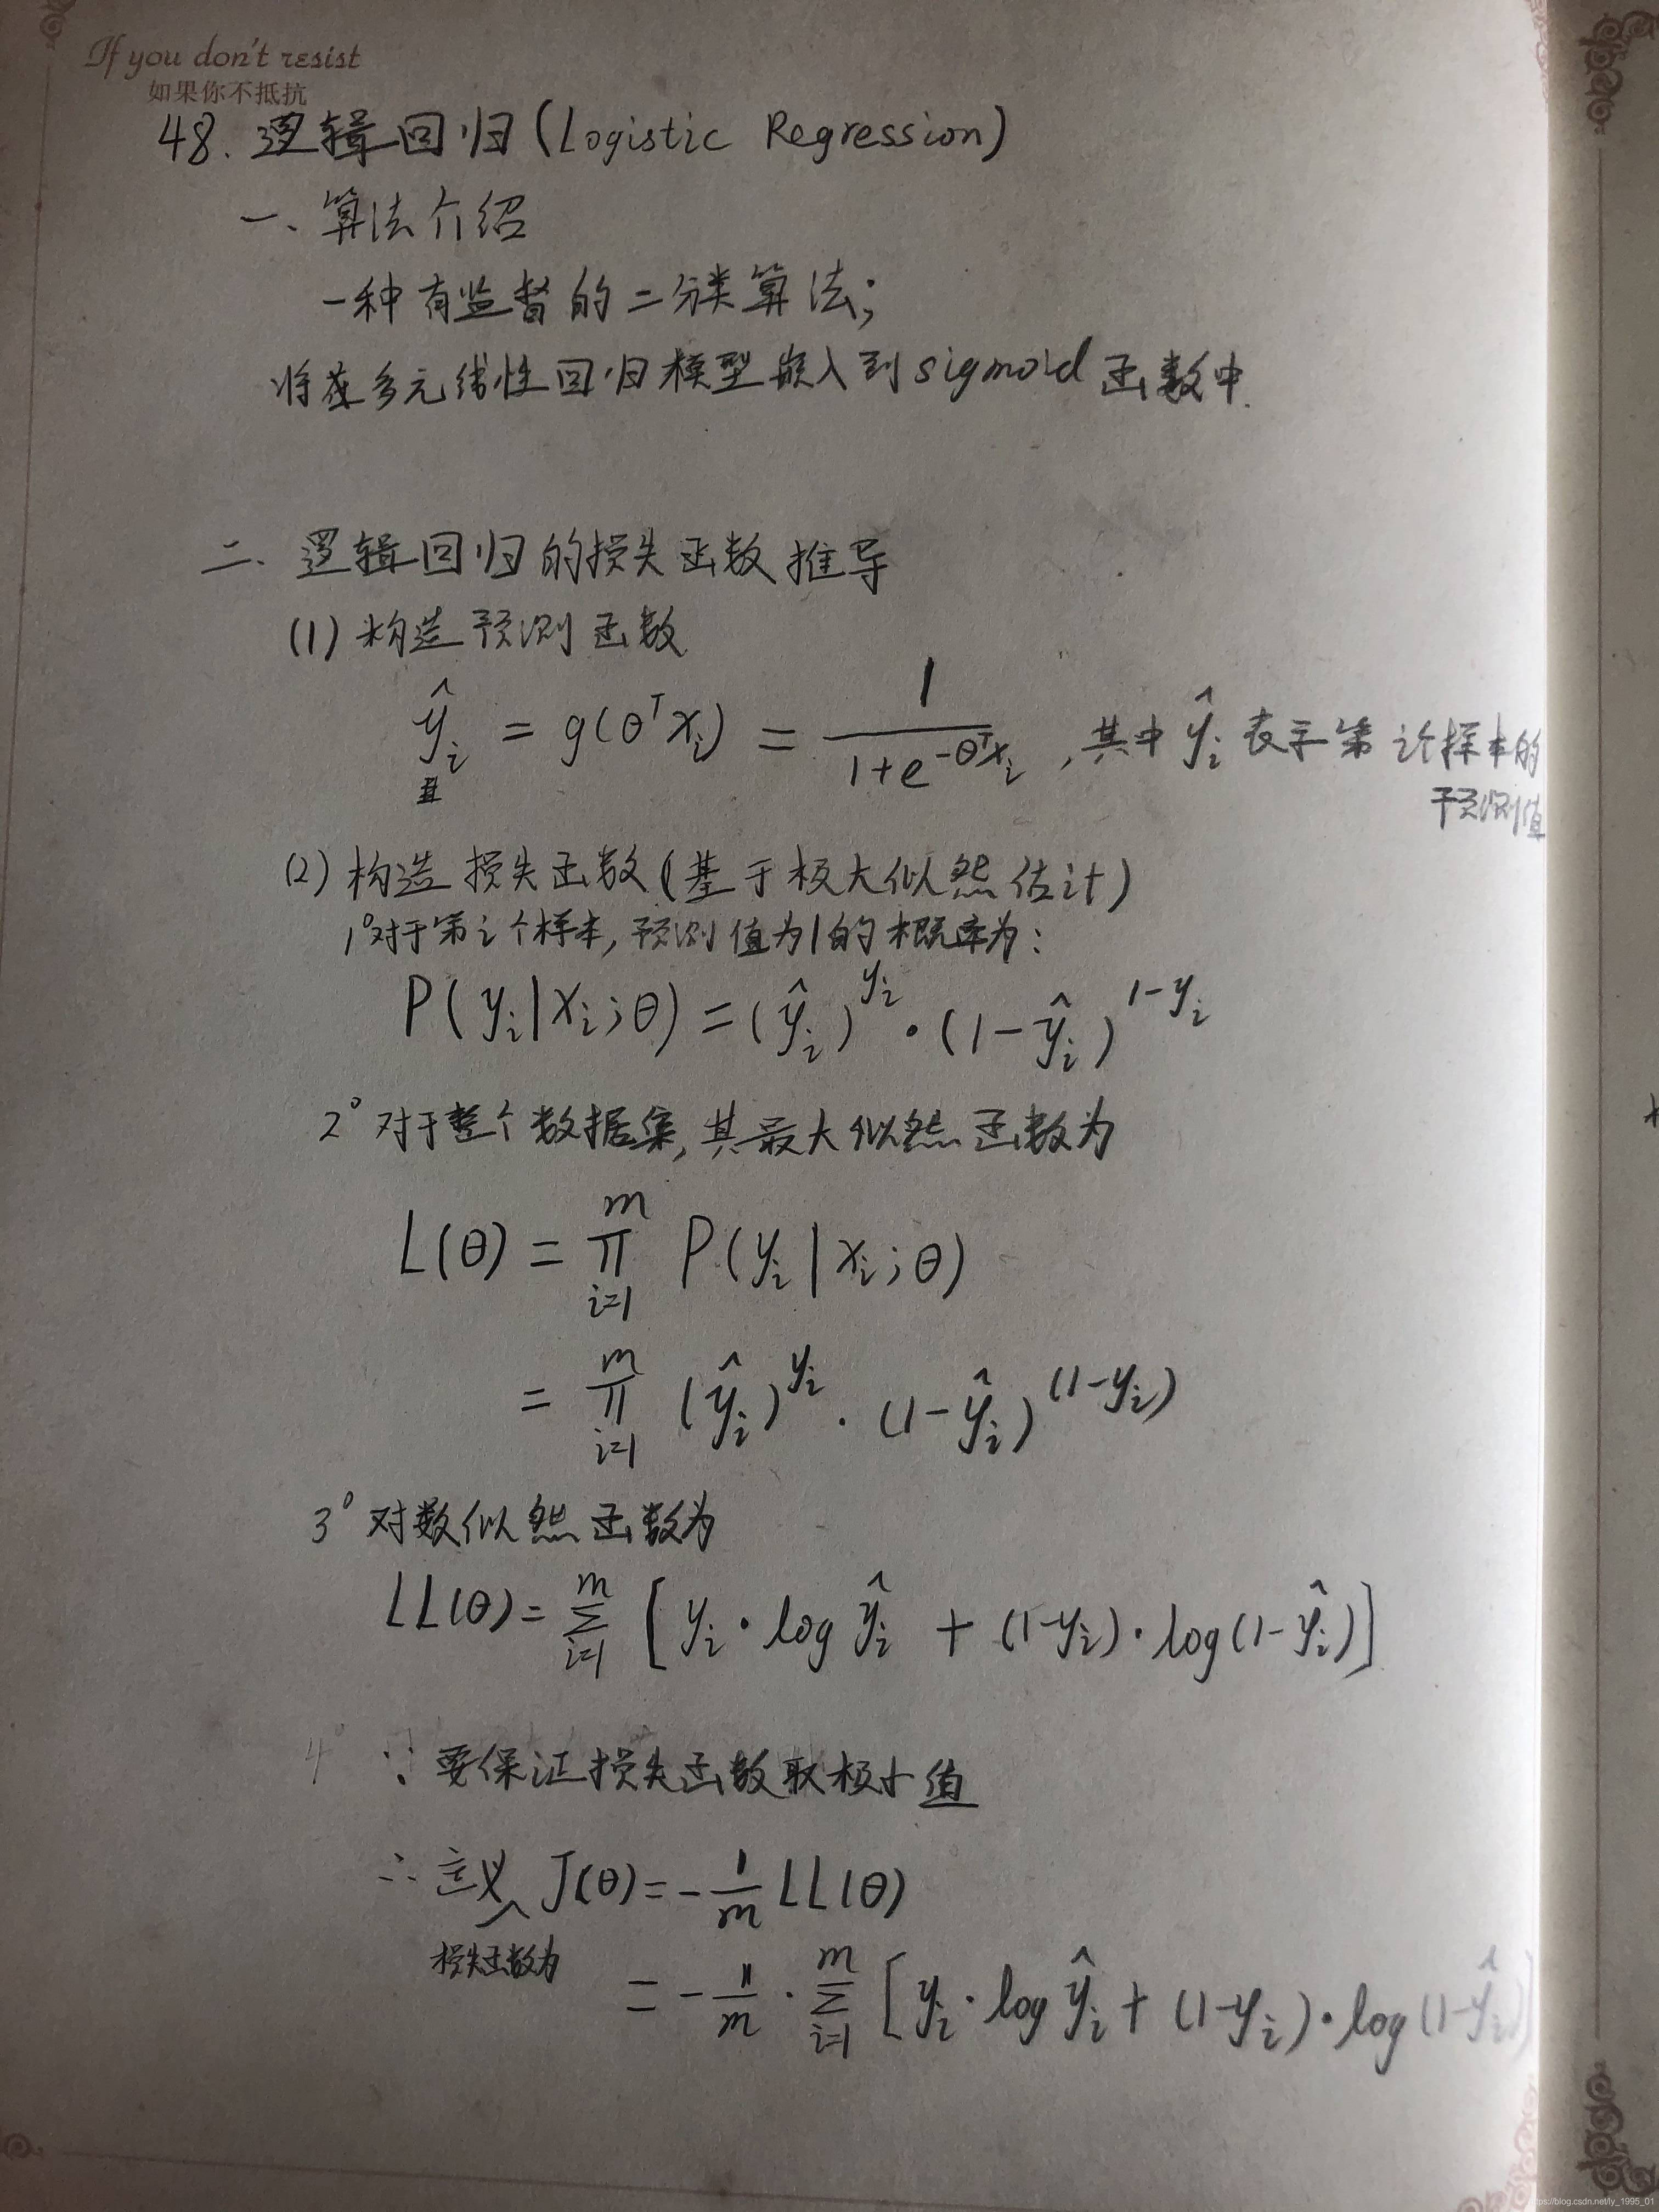 If you don't resist
如果你不抵抗
48. 逻辑回归(Logistic Regression)
一、算法介绍
一种有监督的二分类算法;
将多元线性回归模型嵌入到sigmoid函数中.
二、逻辑回归的损失函数推导
(1) 构造预测函数
ŷᵢ = g(θᵀxᵢ) = 1 / (1+e^(-θᵀxᵢ)) , 其中 ŷᵢ 表示第i个样本的
预测值
(2) 构造损失函数(基于极大似然估计)
1° 对于第i个样本, 预测值为1的概率为:
P(yᵢ|xᵢ;θ) = (ŷᵢ)^yᵢ · (1-ŷᵢ)^(1-yᵢ)
2° 对于整个数据集, 其最大似然函数为
L(θ) = ∏_{i=1}^{m} P(yᵢ|xᵢ;θ)
= ∏_{i=1}^{m} (ŷᵢ)^yᵢ · (1-ŷᵢ)^(1-yᵢ)
3° 对数似然函数为
LL(θ) = ∑_{i=1}^{m} [yᵢ · log ŷᵢ + (1-yᵢ) · log(1-ŷᵢ)]
4° ∵ 要保证损失函数取极小值
∴ 定义 J(θ) = -1/m LL(θ)
损失函数为
= -1/m · ∑_{i=1}^{m} [yᵢ · log ŷᵢ + (1-yᵢ) · log(1-ŷᵢ)]
https://blog.csdn.net/ly_1995_01